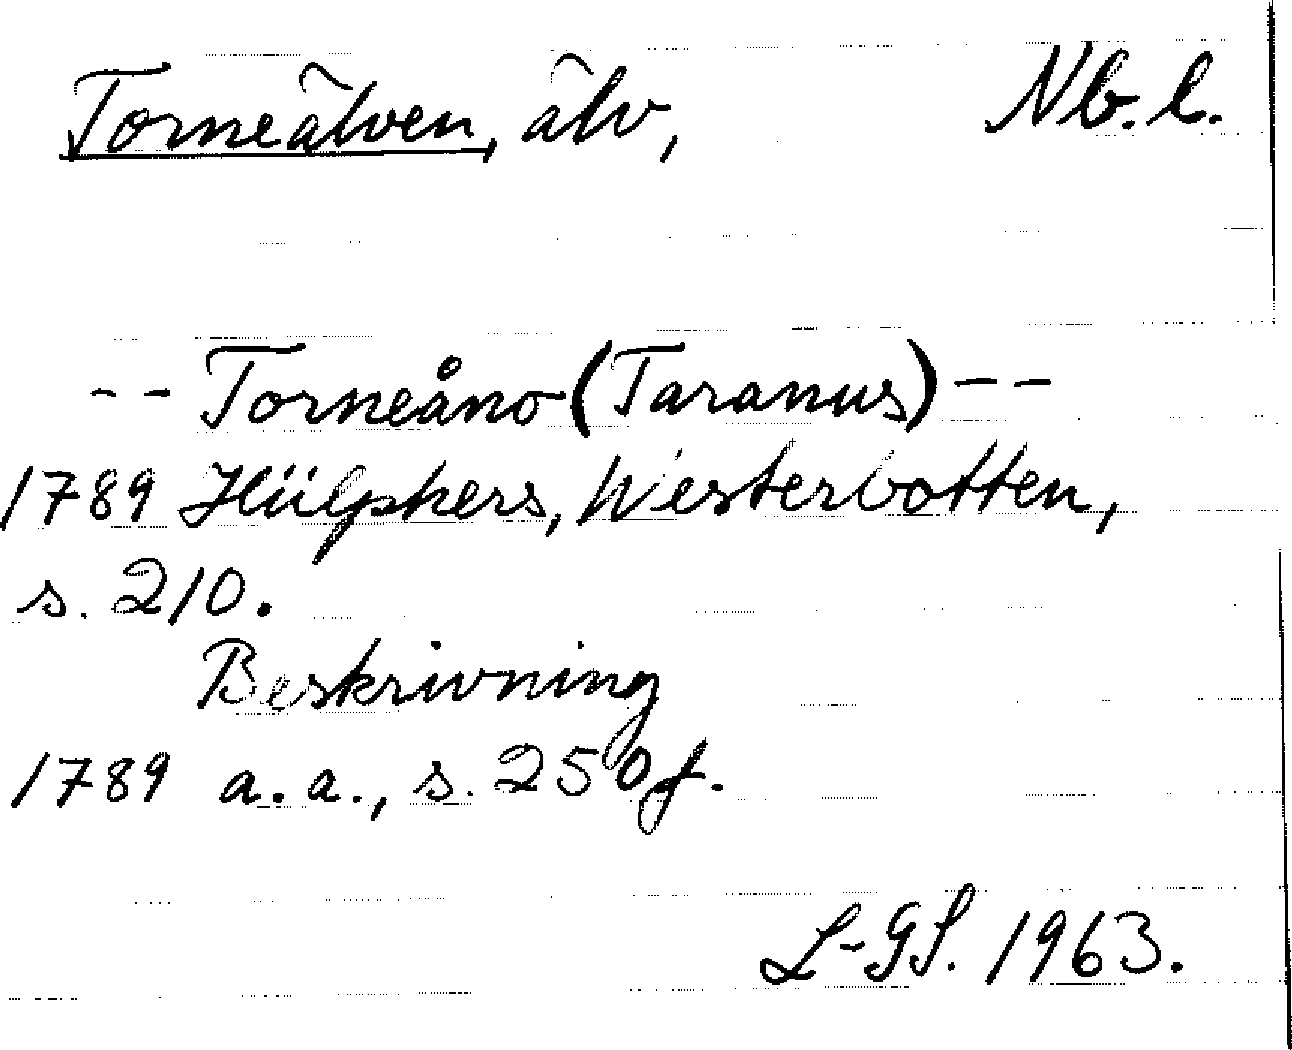 Torneälven, älv, Nb. l.
-- Torneåno (Taranus) --
1789 Hülphers, Westerbotten,
s. 210.
Beskrivning
1789 a.a., s. 250f.
L-GS. 1963.